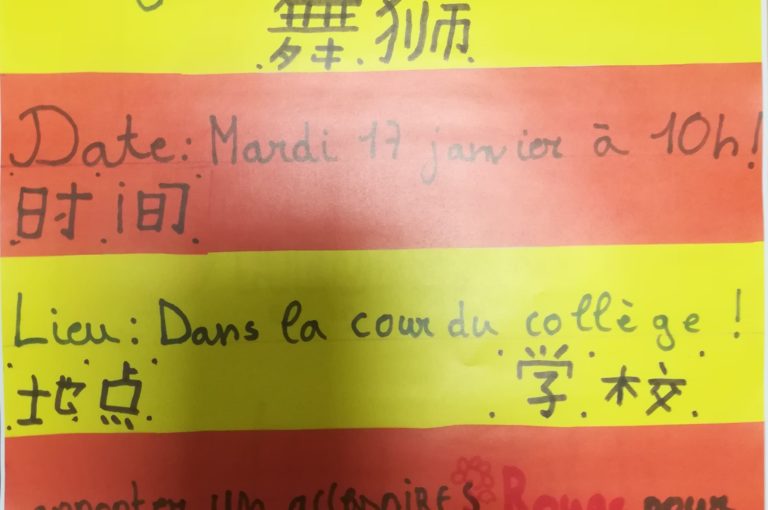 舞狮
Date: Mardi 17 janvier à 10h!
时间
Lieu: Dans la cour du collège !
地点 学校
apporter un accessoires Rouge pour